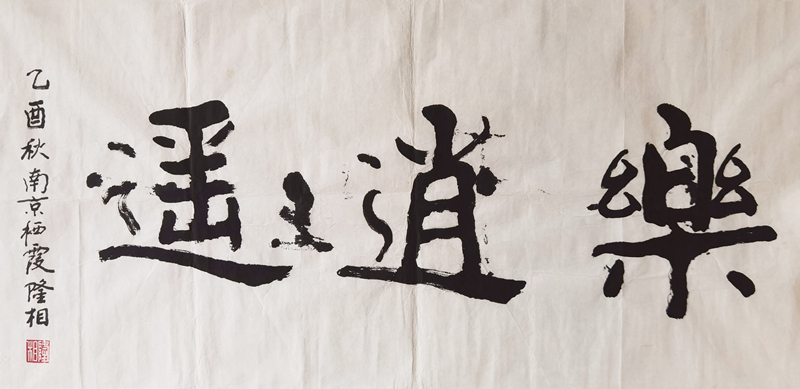 樂逍之遥
乙酉秋南京栖霞隆相
隆相